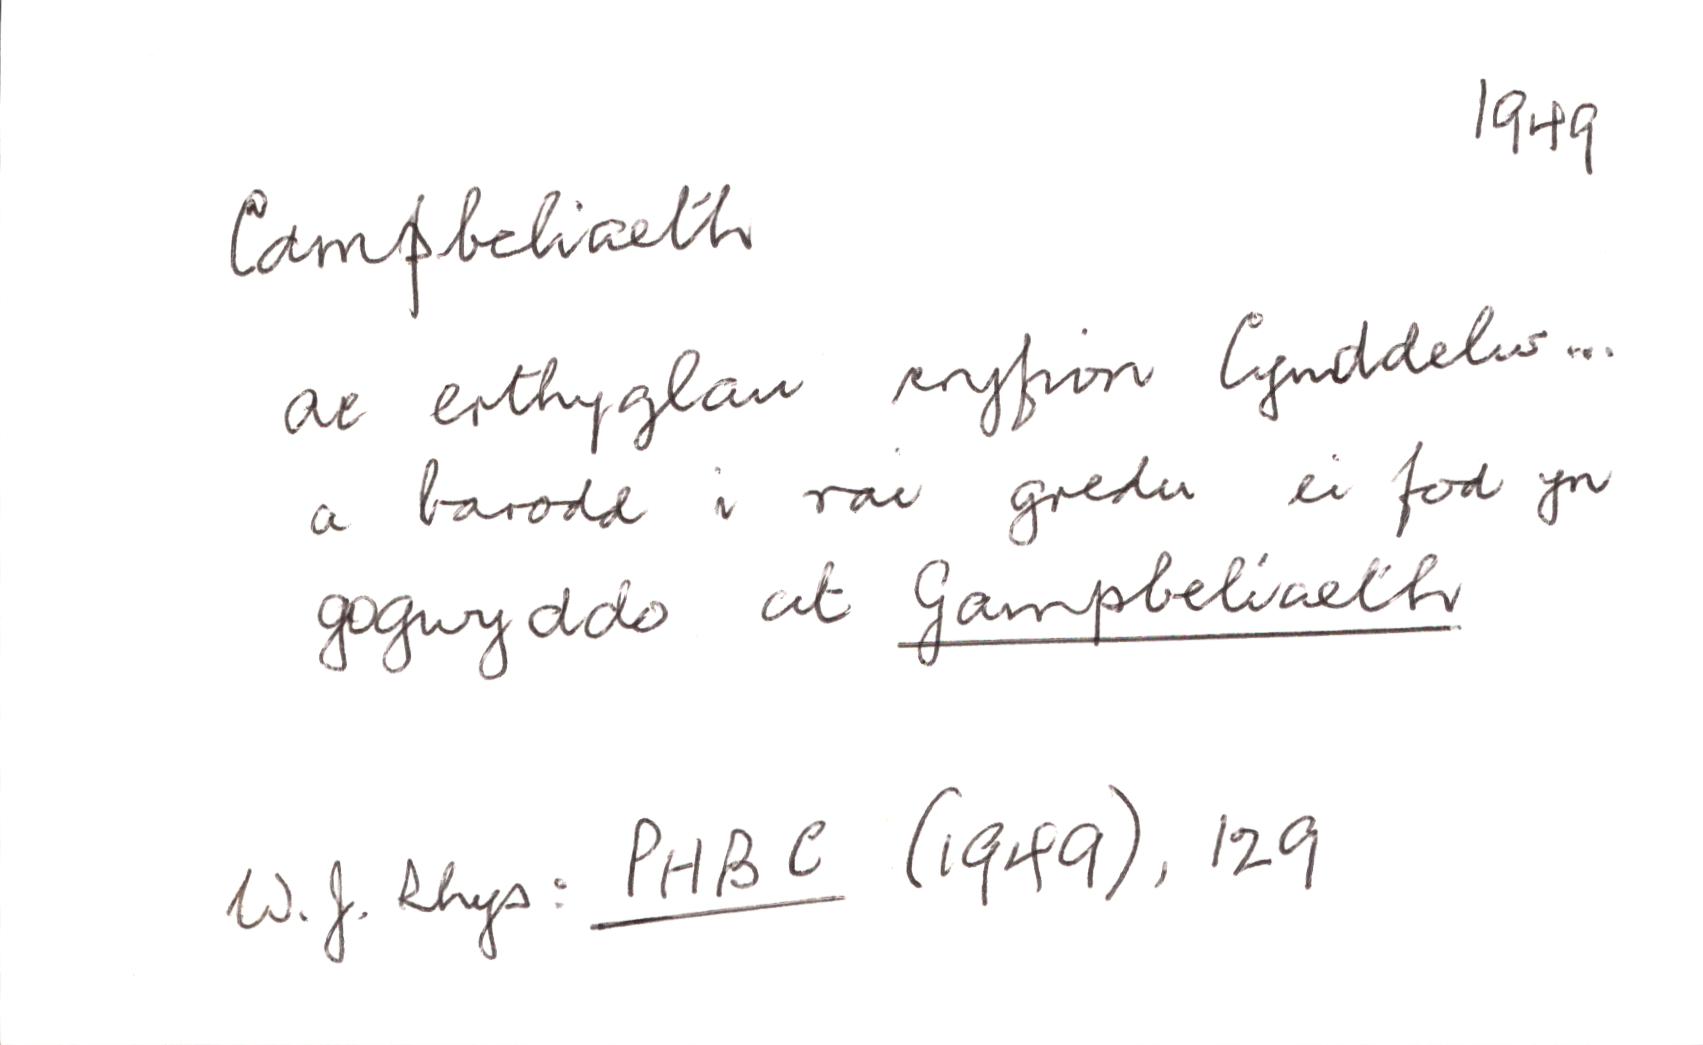 1949
Campbeliaeth
ac erthyglau cryfion Cynddelw...
a barodd i rai gredu ei fod yn
gogwyddo at Gampbeliaeth
W. J. Rhys: PHBC (1949), 129